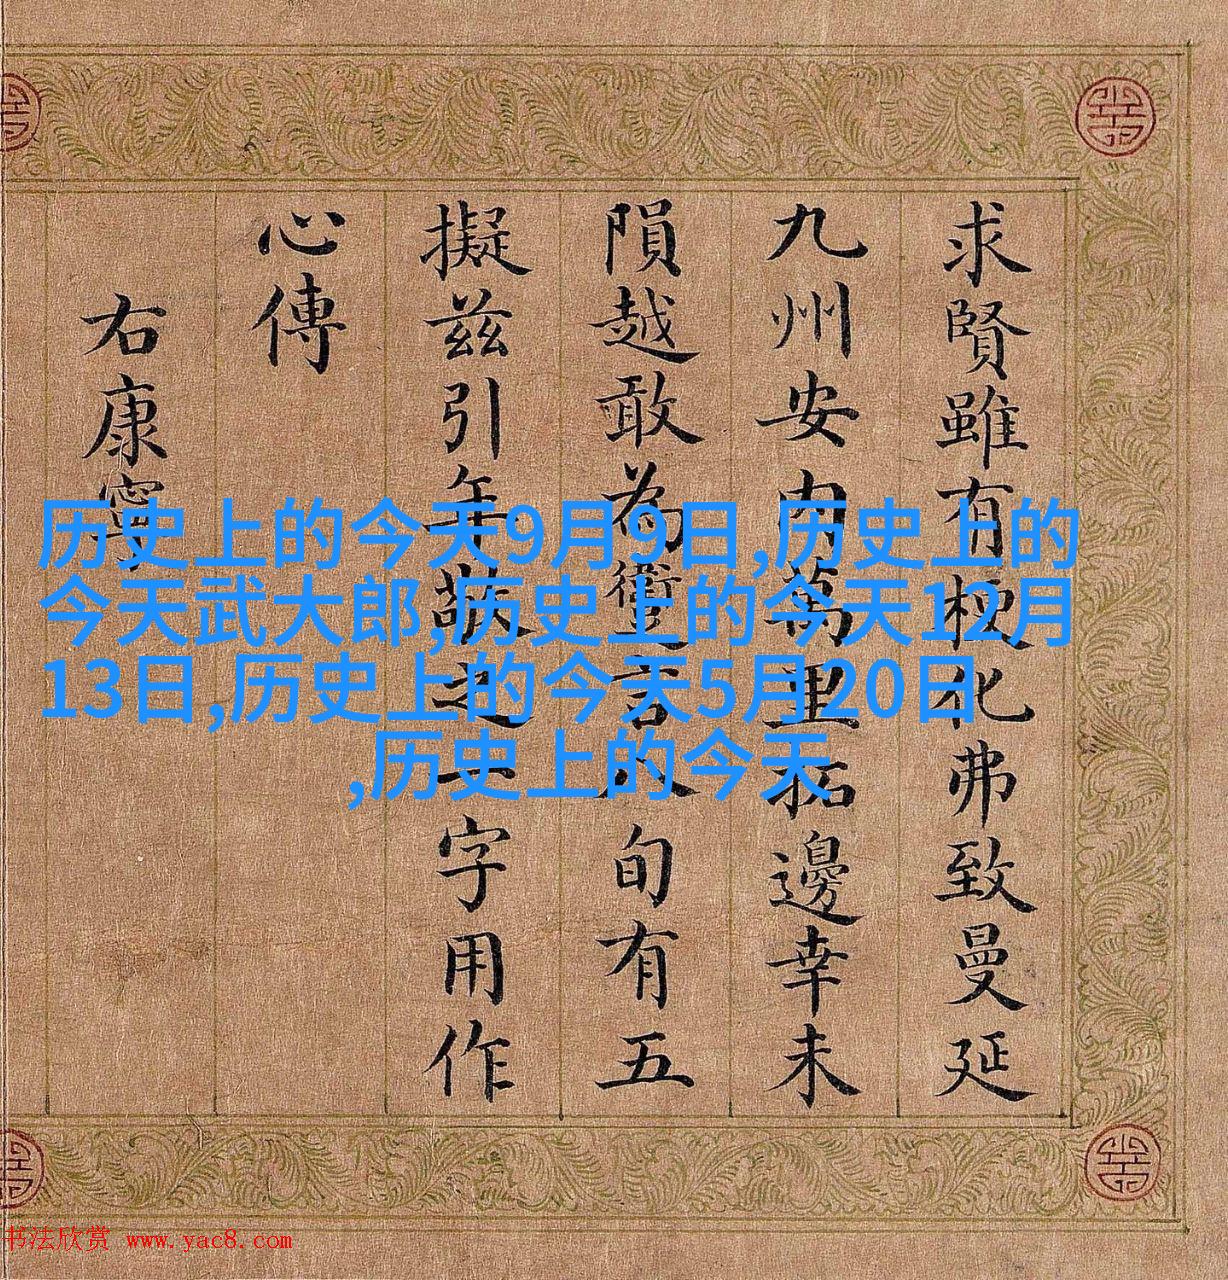 求賢雖有梗化弗致曼延
九州安内萬里拓邊幸未
隕越敢為衛言八旬有五
擬茲引年敬之一字用作
心傳
右康寧
历史上的今天9月9日,历史上的
今天武大郎,历史上的今天12月
13日,历史上的今天5月20日
,历史上的今天
书法欣赏 www.yac8.com